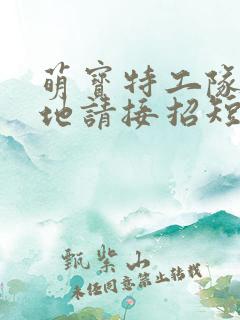 萌寶特工隊
地請接招短
甄柴山
未经同意禁止转载